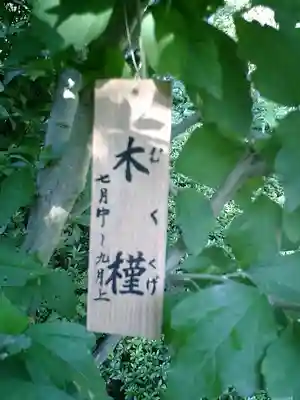 むくげ
木槿
七月中~九月上